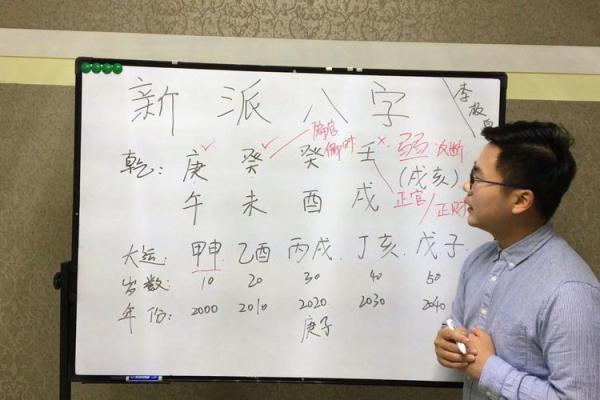 新派八字
李放
偏官
乾: 庚 癸 癸 壬 弱 反断
偏财
(戌亥)
午 未 酉 戌 正官/正财
大运: 甲申 乙酉 丙戌 丁亥 戊子
岁数: 10 20 30 40 50
年份: 2000 2010 2020 2030 2040
庚子